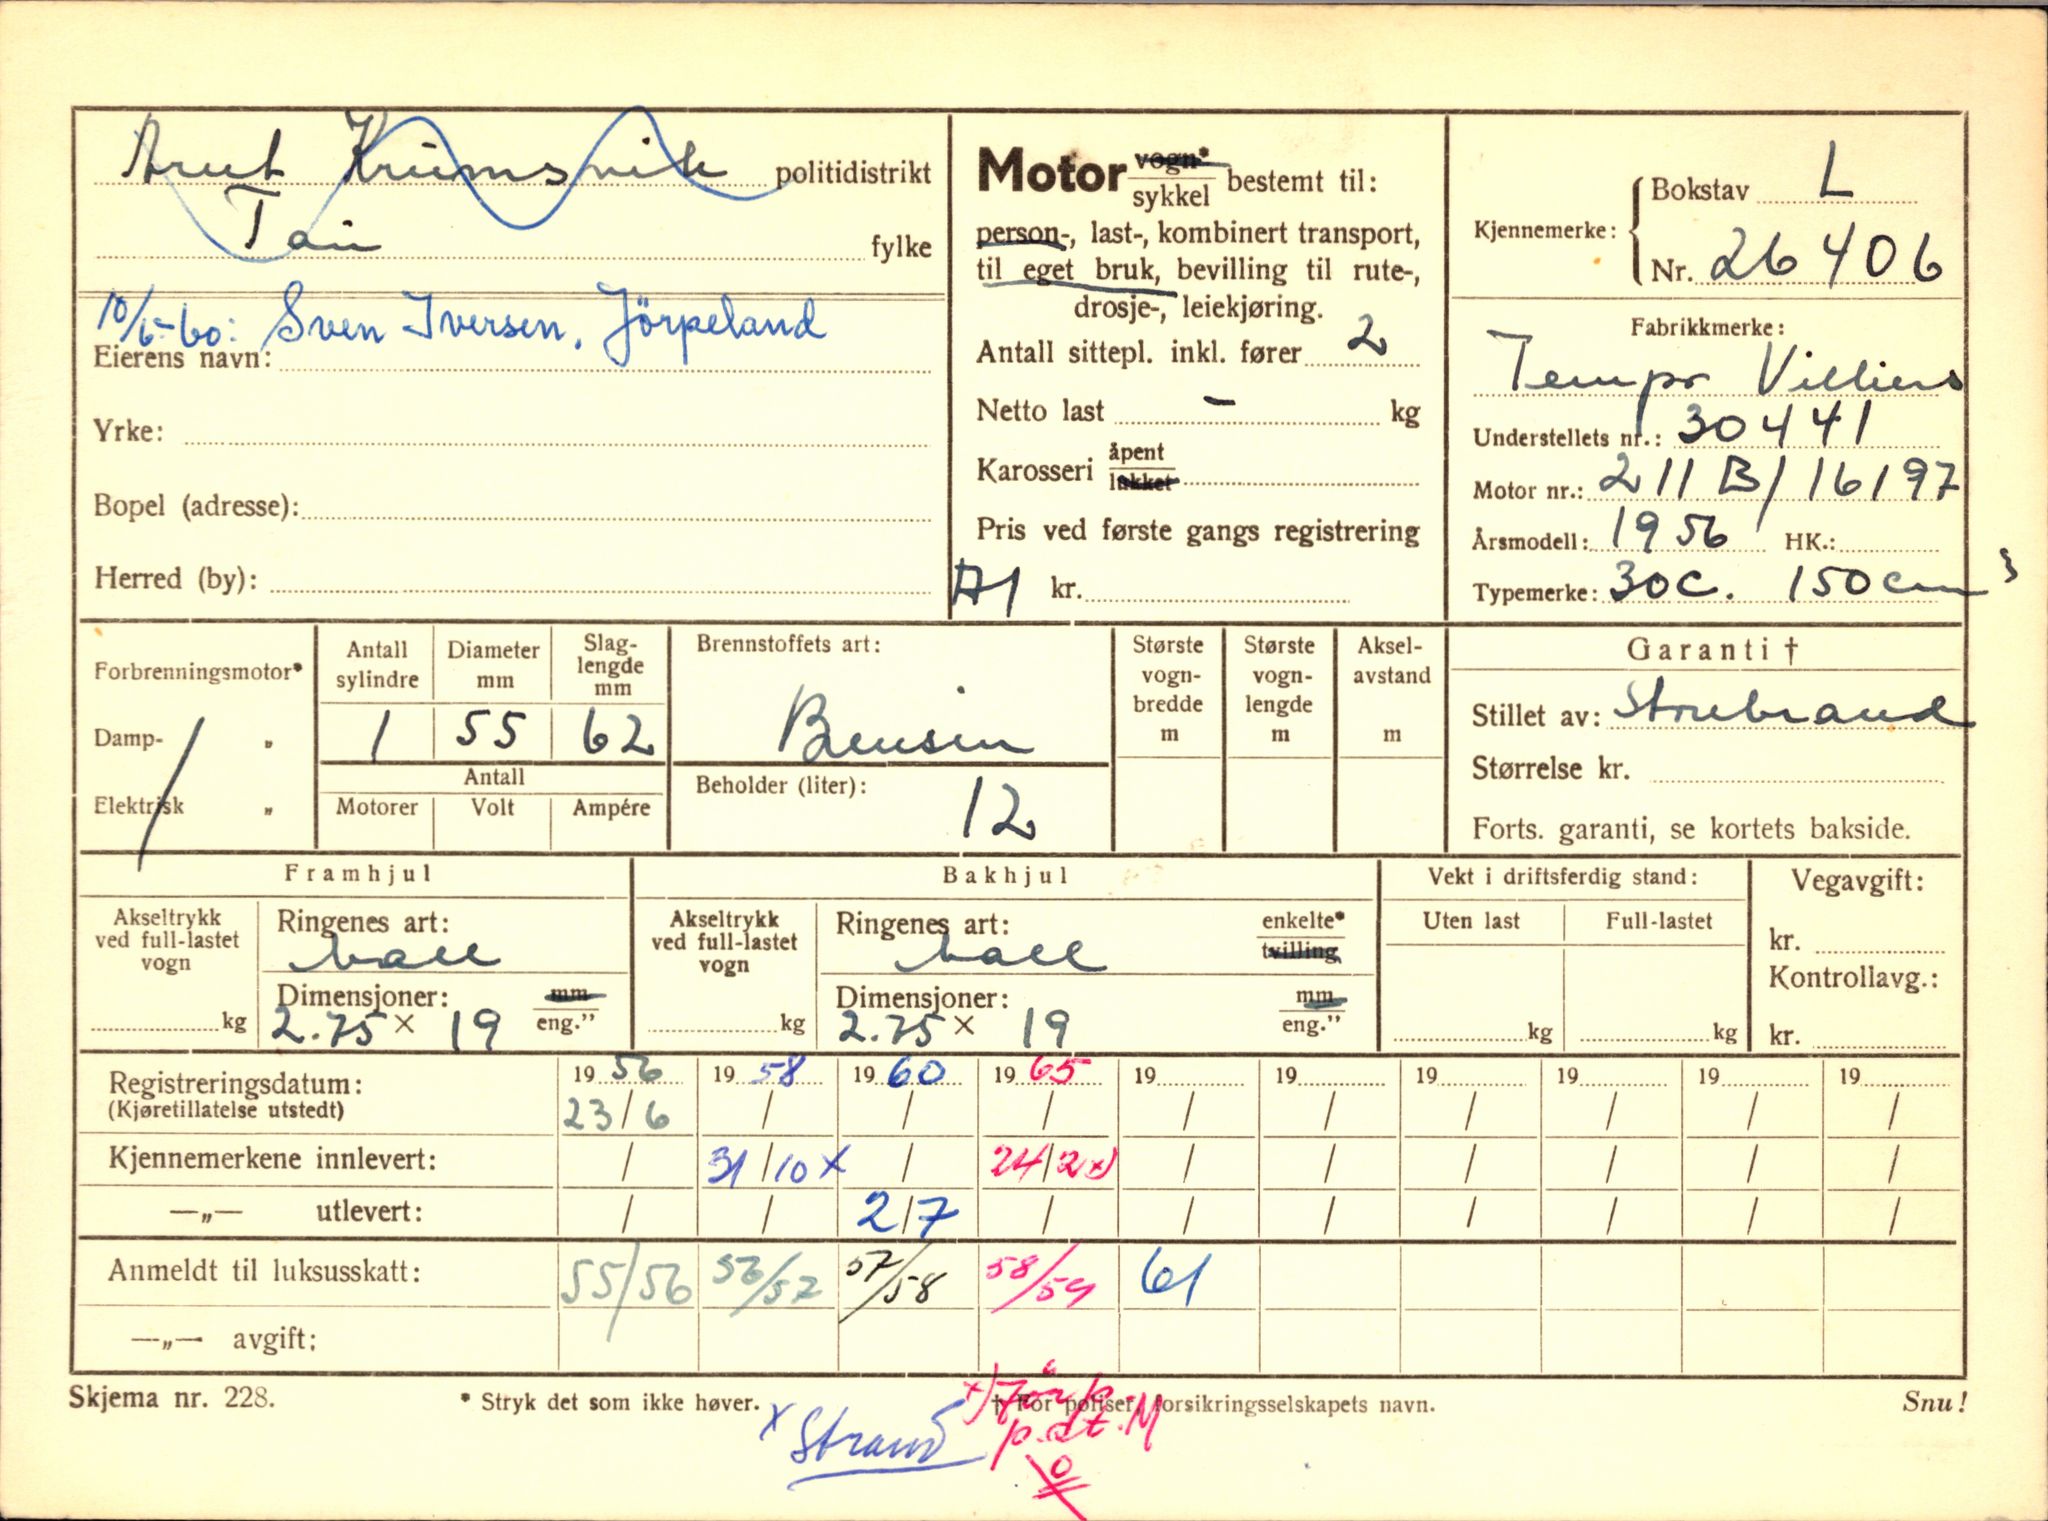 Arut Krumsvik politidistrikt
Tau fylke
10/5-60: Sven Iversen, Jörpeland
Eierens navn:
Yrke:
Bopel (adresse):
Herred (by):
Motor vogn* / sykkel bestemt til:
person-, last-, kombinert transport,
til eget bruk, bevilling til rute-,
drosje-, leiekjøring.
Antall sittepl. inkl. fører 2
Netto last - kg
Karosseri åpent / lukket
Pris ved første gangs registrering
A1 kr.
Kjennemerke: Bokstav L
Nr. 26406
Fabrikkmerke:
Tempo Villiers
Understellets nr.: 30441
Motor nr.: 211B/16197
Årsmodell: 1956 HK.:
Typemerke: 30C. 150 cm³
Forbrenningsmotor*
Damp- „
Elektrisk „
Antall sylindre Diameter mm Slag-lengde mm
1 55 62
Antall
Motorer Volt Ampére
Brennstoffets art:
Bensin
Beholder (liter):
12
Største vogn-bredde m
Største vogn-lengde m
Aksel-avstand m
Garanti †
Stillet av: Storebrand
Størrelse kr.
Forts. garanti, se kortets bakside.
Framhjul
Akseltrykk ved full-lastet vogn
kg
Ringenes art:
ball
Dimensjoner: mm / eng."
2.75 x 19
Bakhjul
Akseltrykk ved full-lastet vogn
kg
Ringenes art: enkelte* / tvilling
ball
Dimensjoner: mm / eng."
2.75 x 19
Vekt i driftsferdig stand:
Uten last Full-lastet
kg kg
Vegavgift:
kr.
Kontrollavg.:
kr.
Registreringsdatum: 1956 1958 1960 1965 19 19 19 19 19 19
(Kjøretillatelse utstedt) 23/6 / / / / / / / / /
Kjennemerkene innlevert: / 31/10 x / 24/2 x) / / / / / /
—„— utlevert: / / 2/7 / / / / / / /
Anmeldt til luksusskatt: 55/56 56/57 57/58 58/59 61
—„— avgift:
Skjema nr. 228. * Stryk det som ikke høver. † For poliser, forsikringsselskapets navn. Snu!
x Strand
x) Jørp.
p.dt. M
0